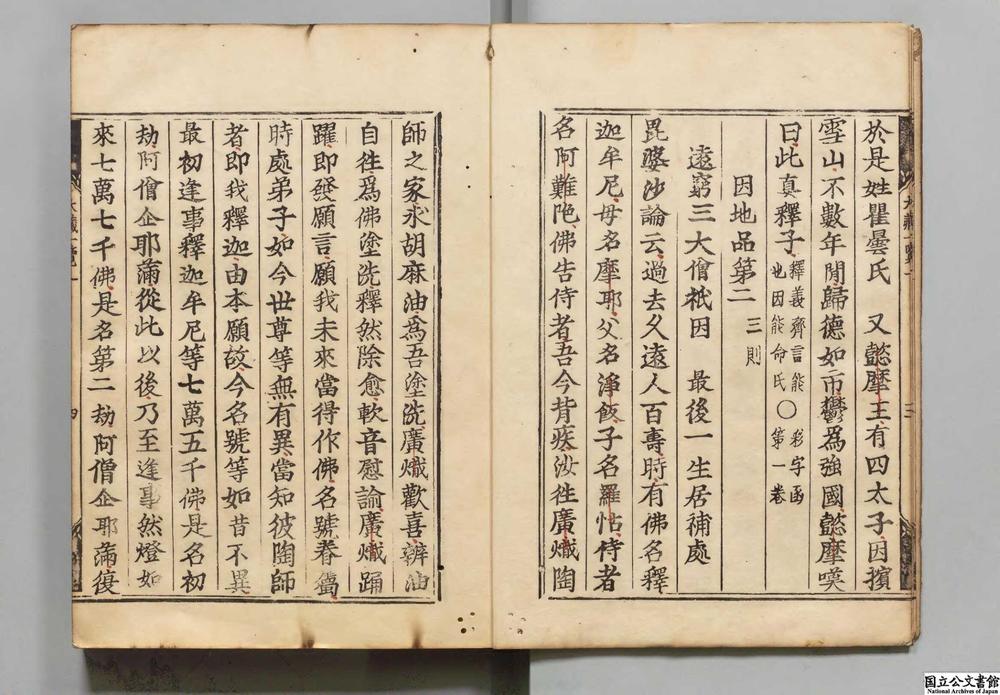 於是姓瞿曇氏　又懿摩王有四太子因擯
雪山不數年閒歸德如市欝爲強國懿摩嘆
曰此真釋子釋義齊言能也因能命氏〇彩字函第一卷
因地品第二　三則
遠窮三大僧祇因　最後一生居補處
毘婆沙論云過去久遠人百壽時有佛名釋
迦牟尼母名摩耶父名淨飯子名羅怙侍者
名阿難陁佛告侍者吾今背疾汝往廣熾陶
師之家求胡麻油爲吾塗洗廣熾歡喜辦油
自往爲佛塗洗釋然除愈軟音慰諭廣熾踊
躍即發願言願我未來當得作佛名號眷屬
時處弟子如今世尊等無有異當知彼陶師
者即我釋迦由本願故今名號等如昔不異
最初逢事釋迦牟尼等七萬五千佛是名初
劫阿僧企耶滿從此以後乃至逢事然燈如
來七萬七千佛是名第二劫阿僧企耶滿復
大藏一覽一
四
三
国立公文書館
National Archives of Japan